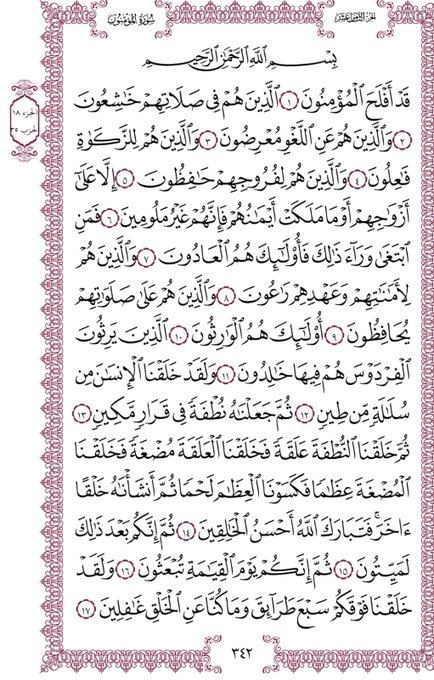 الجزء الثامن عشر
سورة المؤمنون
الجزء ١٨
الحزب ٣٥
بِسْمِ ٱللَّهِ ٱلرَّحْمَٰنِ ٱلرَّحِيمِ
قَدْ أَفْلَحَ ٱلْمُؤْمِنُونَ ١ ٱلَّذِينَ هُمْ فِى صَلَاتِهِمْ خَٰشِعُونَ
٢ وَٱلَّذِينَ هُمْ عَنِ ٱللَّغْوِ مُعْرِضُونَ ٣ وَٱلَّذِينَ هُمْ لِلزَّكَوٰةِ
فَٰعِلُونَ ٤ وَٱلَّذِينَ هُمْ لِفُرُوجِهِمْ حَٰفِظُونَ ٥ إِلَّا عَلَىٰٓ
أَزْوَٰجِهِمْ أَوْ مَا مَلَكَتْ أَيْمَٰنُهُمْ فَإِنَّهُمْ غَيْرُ مَلُومِينَ ٦ فَمَنِ
ٱبْتَغَىٰ وَرَآءَ ذَٰلِكَ فَأُو۟لَٰٓئِكَ هُمُ ٱلْعَادُونَ ٧ وَٱلَّذِينَ هُمْ
لِأَمَٰنَٰتِهِمْ وَعَهْدِهِمْ رَٰعُونَ ٨ وَٱلَّذِينَ هُمْ عَلَىٰ صَلَوَٰتِهِمْ
يُحَافِظُونَ ٩ أُو۟لَٰٓئِكَ هُمُ ٱلْوَٰرِثُونَ ١٠ ٱلَّذِينَ يَرِثُونَ
ٱلْفِرْدَوْسَ هُمْ فِيهَا خَٰلِدُونَ ١١ وَلَقَدْ خَلَقْنَا ٱلْإِنسَٰنَ مِن
سُلَٰلَةٍ مِّن طِينٍ ١٢ ثُمَّ جَعَلْنَٰهُ نُطْفَةً فِى قَرَارٍ مَّكِينٍ ١٣
ثُمَّ خَلَقْنَا ٱلنُّطْفَةَ عَلَقَةً فَخَلَقْنَا ٱلْعَلَقَةَ مُضْغَةً فَخَلَقْنَا
ٱلْمُضْغَةَ عِظَٰمًا فَكَسَوْنَا ٱلْعِظَٰمَ لَحْمًا ثُمَّ أَنشَأْنَٰهُ خَلْقًا
ءَاخَرَ ۚ فَتَبَارَكَ ٱللَّهُ أَحْسَنُ ٱلْخَٰلِقِينَ ١٤ ثُمَّ إِنَّكُم بَعْدَ ذَٰلِكَ
لَمَيِّتُونَ ١٥ ثُمَّ إِنَّكُمْ يَوْمَ ٱلْقِيَٰمَةِ تُبْعَثُونَ ١٦ وَلَقَدْ
خَلَقْنَا فَوْقَكُمْ سَبْعَ طَرَآئِقَ وَمَا كُنَّا عَنِ ٱلْخَلْقِ غَٰفِلِينَ ١٧
٣٤٢